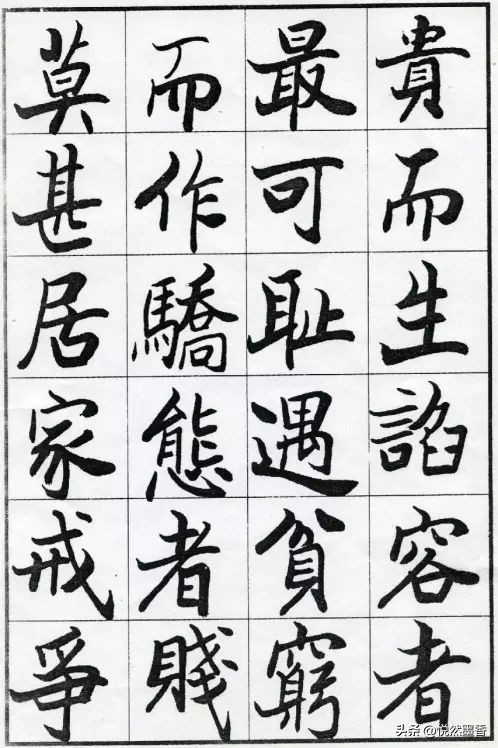 貴而生諂容者
最可恥遇貧窮
而作驕態者賤
莫甚居家戒爭
头条 @悦然墨香